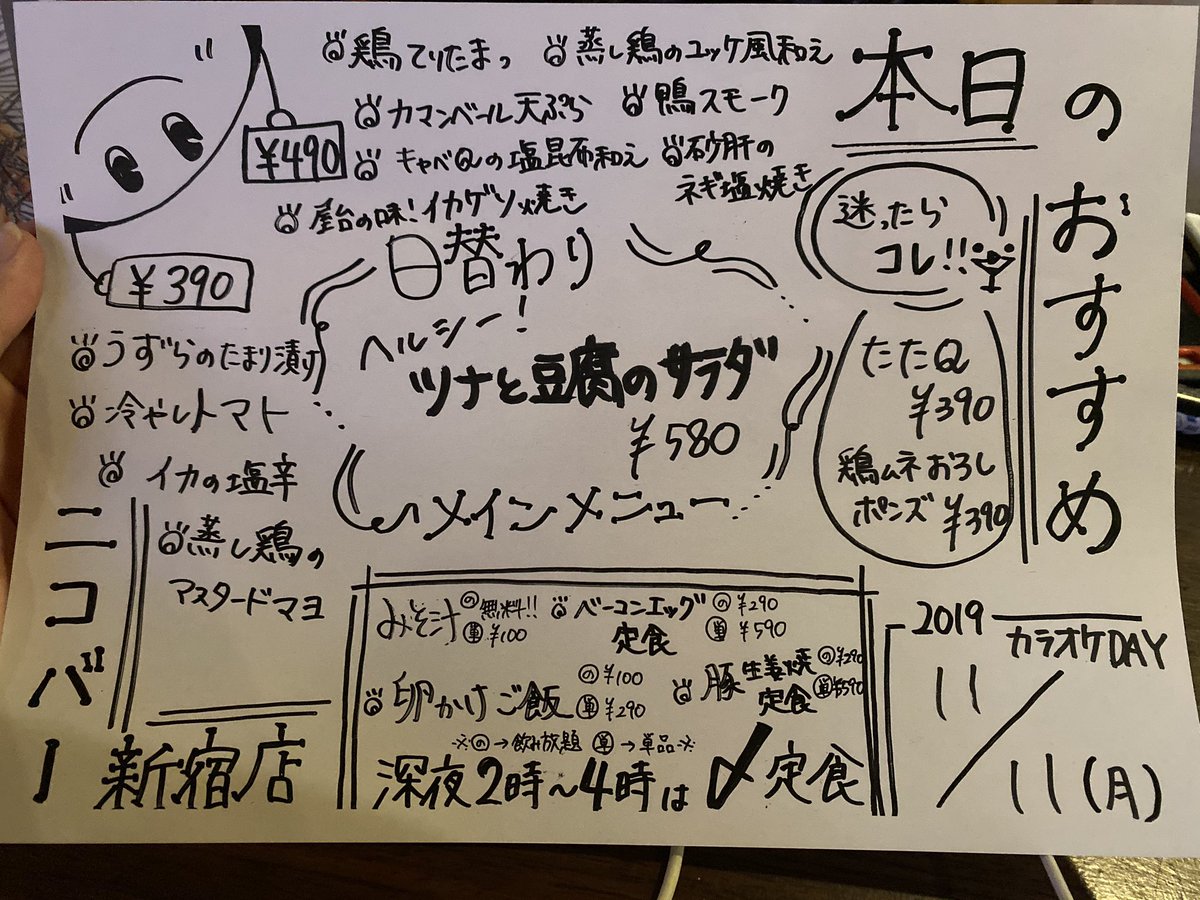 本日の
おすすめ
¥490
鶏てりたまっ
蒸し鶏のユッケ風和え
カマンベール天ぷら
鴨スモーク
キャベQの塩昆布和え
砂肝の
ネギ塩焼き
屋台の味!イカゲソ焼き
¥390
うずらのたまり漬け
冷やしトマト
イカの塩辛
蒸し鶏の
マスタードマヨ
日替わり
ヘルシー!
ツナと豆腐のサラダ
¥580
メインメニュー
迷ったら
コレ!!
たたQ
¥390
鶏ムネおろし
ポンズ ¥390
みそ汁 の無料!! 単¥100
ベーコンエッグ
定食
の¥290
単¥590
卵かけご飯 の¥100 単¥290
豚生姜焼
定食
の¥290
単¥590
※の→飲み放題 単→単品※
深夜2時〜4時は〆定食
ニコバー新宿店
2019
カラオケDAY
11/11(月)